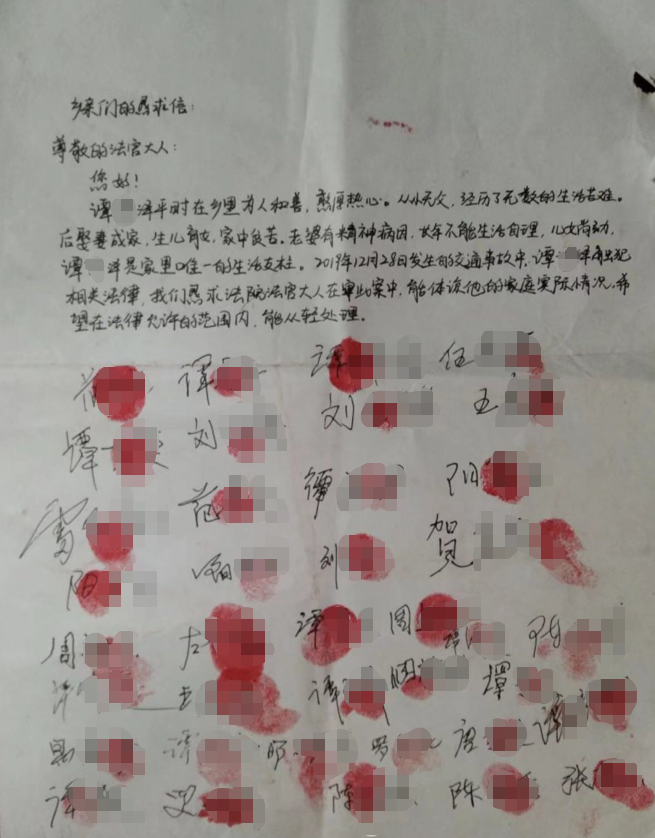 乡亲们的恳求信：
尊敬的法官大人：
您好！
谭 泽平时在乡里为人和善，憨厚热心。从小无父，经历了无数的生活苦难。
后娶妻成家，生儿育女，家中贫苦。老婆有精神病因，长年不能生活自理，儿女尚幼，
谭 泽是家里唯一的生活支柱。2019年12月28日发生的交通事故中，谭 泽触犯
相关法律，我们恳求法院法官大人在审此案中，能体谅他的家庭实际情况，希
望在法律允许的范围内，能从轻处理。
谭 谭 伍
刘 王
谭 刘
范 谭 阳
雷 贺
阳 刘
周 左 谭 周 陈
王 谭 谭
易 谭 罗 唐 谭
谭 陈 陈 张